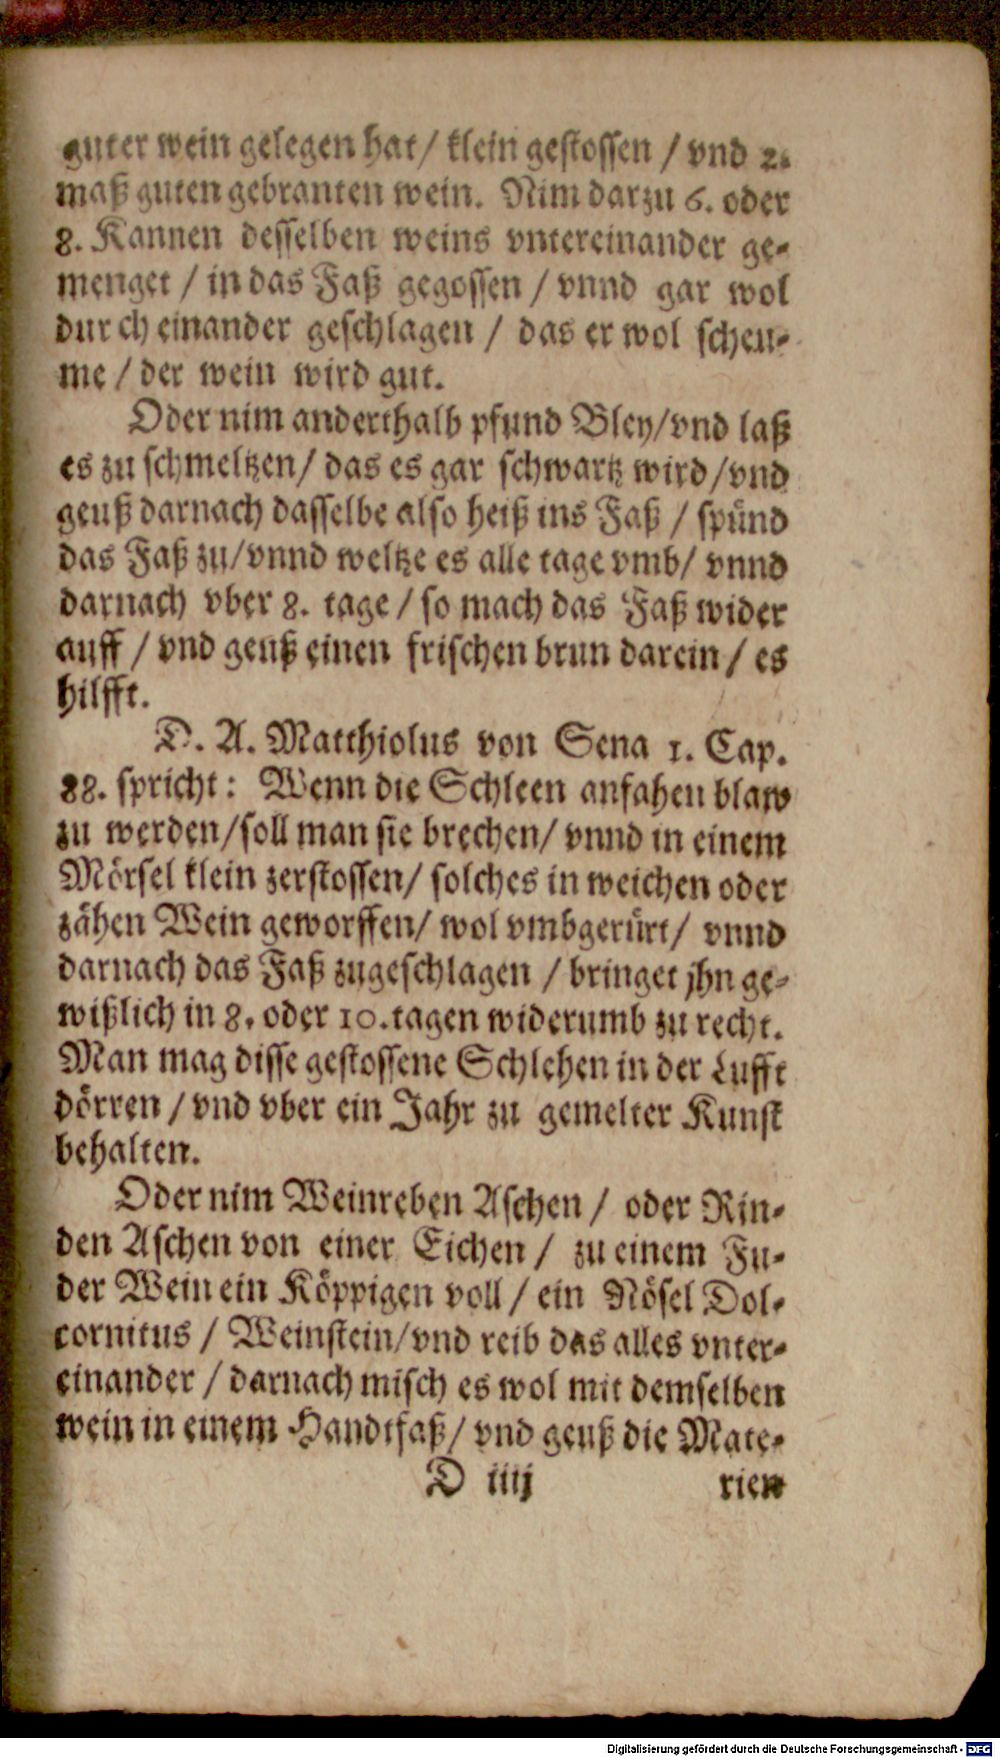 guter wein gelegen hat / klein gestossen / vnd 2.
maß guten gebranten wein. Nim darzu 6. oder
8. Kannen desselben weins vntereinander ge-
menget / in das Faß gegossen / vnnd gar wol
durch einander geschlagen / das er wol scheu-
me / der wein wird gut.
Oder nim anderthalb pfund Bley/vnd laß
es zu schmeltzen/ das es gar schwartz wird/vnd
geuß darnach dasselbe also heiß ins Faß / spünd
das Faß zu/vnnd weltze es alle tage vmb/ vnnd
darnach vber 8. tage / so mach das Faß wider
auff / vnd geuß einen frischen brun darein / es
hilfft.
D. A. Matthiolus von Sena 1. Cap.
88. spricht: Wenn die Schleen anfahen blaw
zu werden/soll man sie brechen/ vnnd in einem
Mörsel klein zerstossen/ solches in weichen oder
zähen Wein geworffen/ wol vmbgerürt/ vnnd
darnach das Faß zugeschlagen / bringet jhn ge-
wißlich in 8. oder 10. tagen widerumb zu recht.
Man mag disse gestossene Schlehen in der Lufft
dörren / vnd vber ein Jahr zu gemelter Kunst
behalten.
Oder nim Weinreben Aschen / oder Rin-
den Aschen von einer Eichen / zu einem Fu-
der Wein ein Köppigen voll / ein Nösel Dol-
cornitus / Weinstein/vnd reib das alles vnter-
einander / darnach misch es wol mit demselben
wein in einem Handtfaß/ vnd geuß die Mate-
D iiij rien
Digitalisierung gefördert durch die Deutsche Forschungsgemeinschaft - DFG